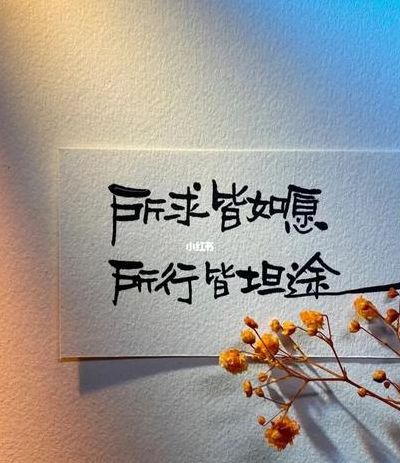 所求皆如愿
小红书
所行皆坦途